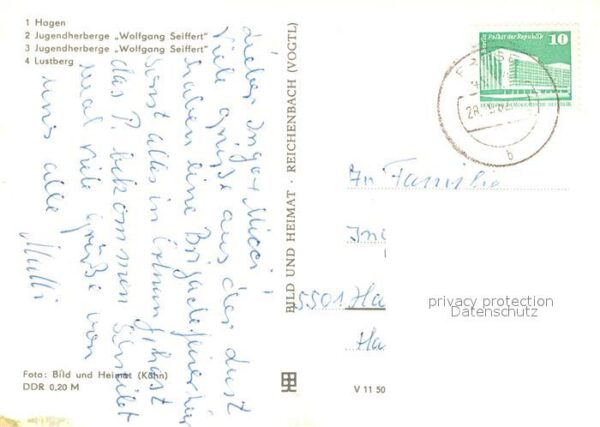 1 Hagen
2 Jugendherberge „Wolfgang Seiffert"
3 Jugendherberge „Wolfgang Seiffert"
4 Lustberg
Lieber Inge + Micci!
Viele Grüße aus der
haben eine Brigadefeier hier
sonst alles in Ordnung, hast
das P. bekommen Schreibt
mal viele Grüße von
uns alle
Mutti
Foto: Bild und Heimat (Kühn)
DDR 0,20 M
BILD UND HEIMAT · REICHENBACH (VOGTL)
V 11 50
10
Palast der Republik
b
An Familie
5501 Ha
Ha
privacy protection
Datenschutz